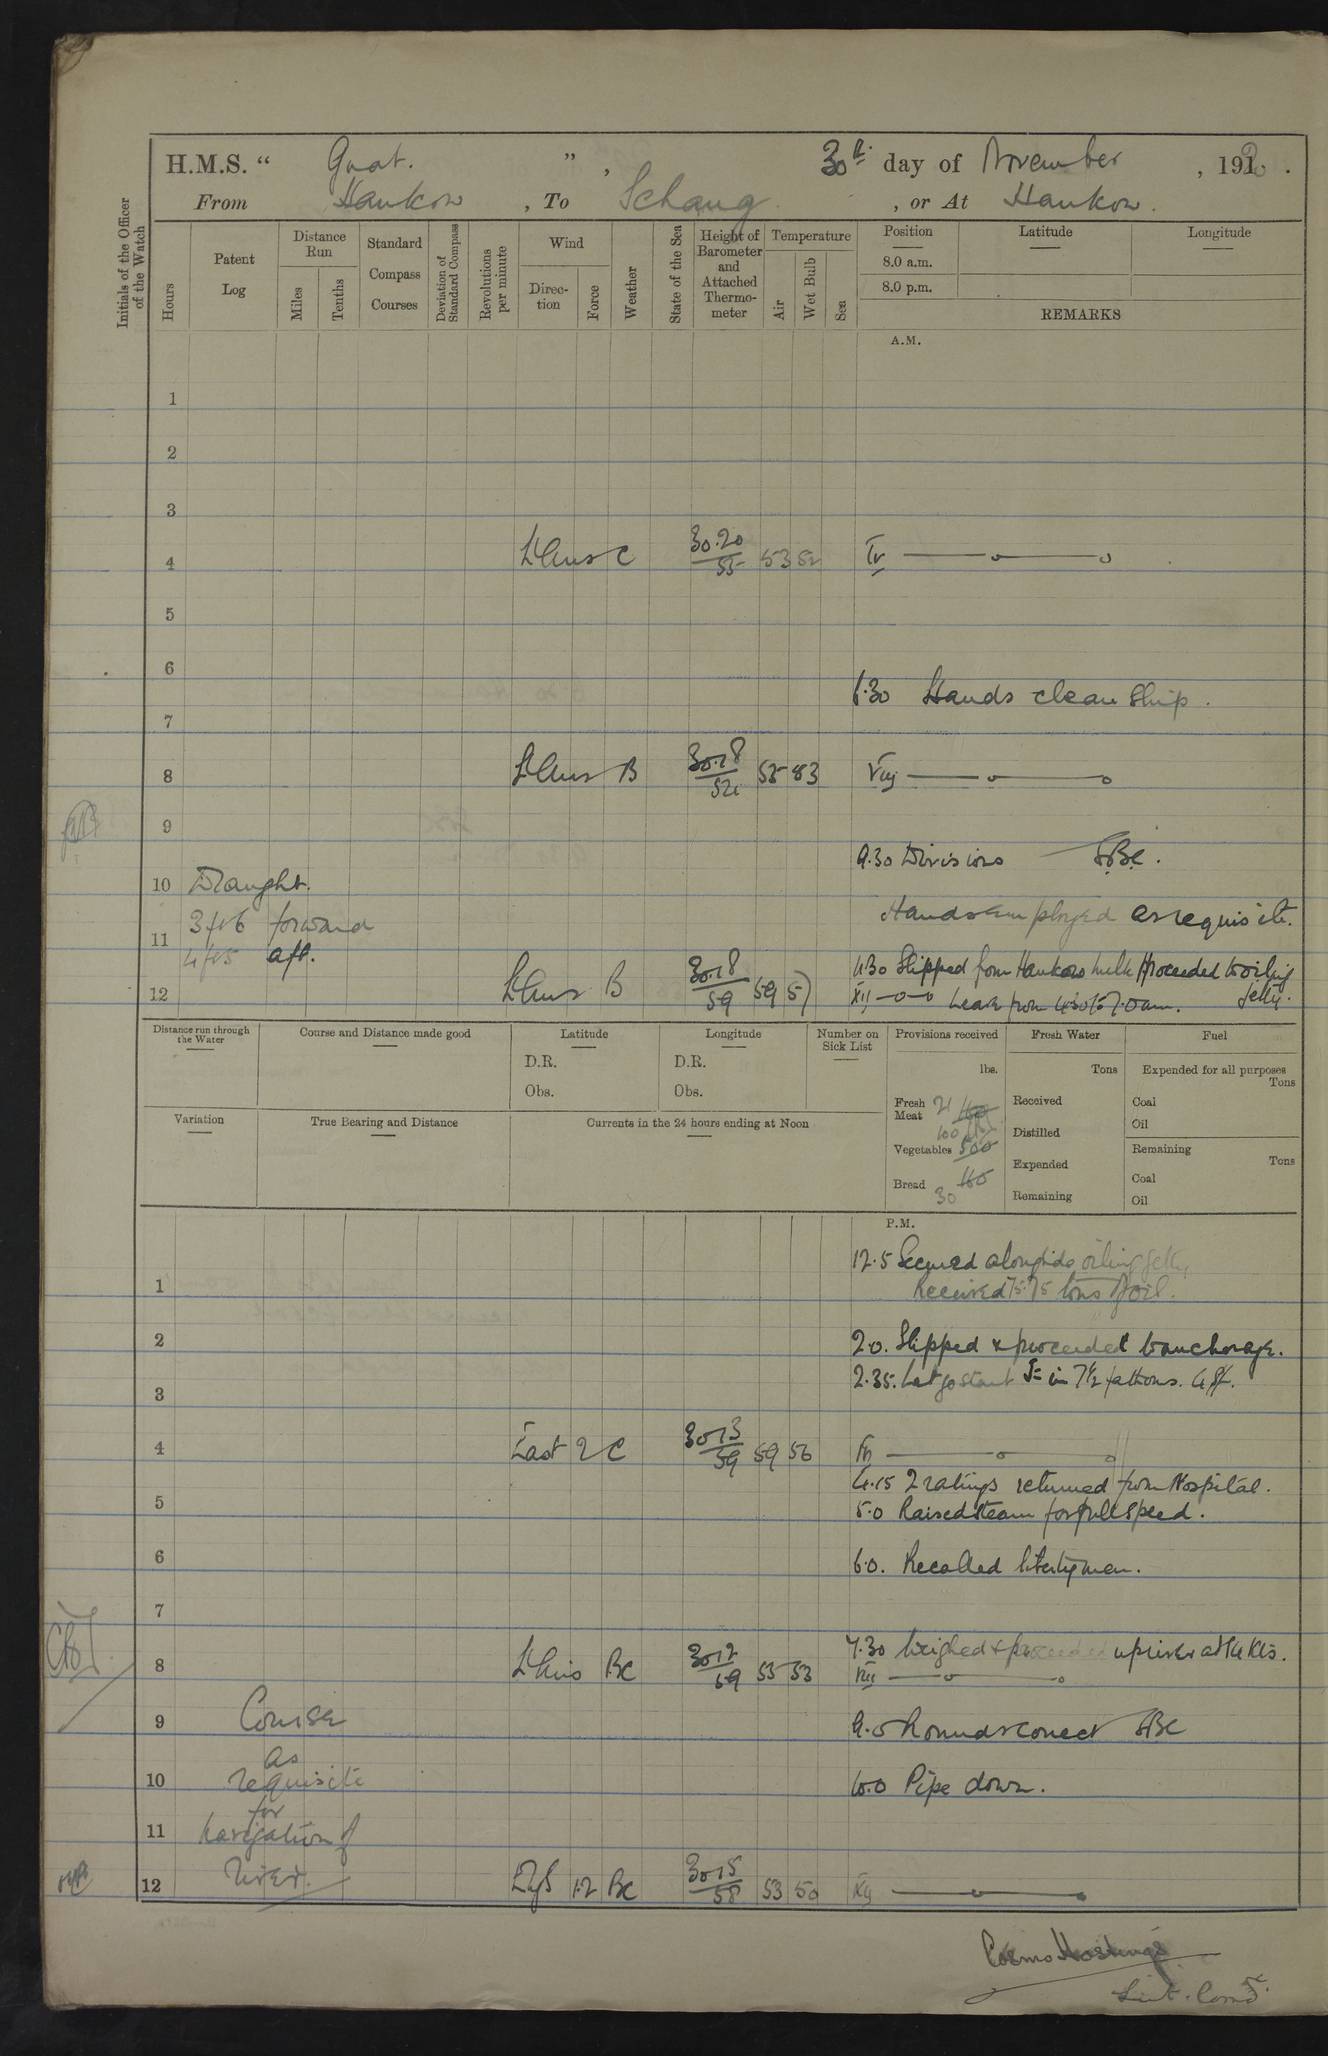 H.M.S. “ Gnat. ” , 30th day of November , 1920 .
From Hankow , To Ichang , or At Hankow.
Initials of the Officer of the Watch
Hours
Patent Log
Distance Run
Miles
Tenths
Standard Compass Courses
Deviation of Standard Compass
Revolutions per minute
Wind
Direction
Force
Weather
State of the Sea
Height of Barometer and Attached Thermometer
Temperature
Air
Wet Bulb
Sea
Position
Latitude
Longitude
8.0 a.m.
8.0 p.m.
REMARKS
A.M.
1
2
3
4 Lt Airs C 30.20 / 55 53 52 IV
5
6
6.30 Hands clean Ship.
7
8 Lt Airs B 30.18 / 52 VIII
9
9.30 Divisions
10 Draught.
Hands employed as requisite.
3ft 6 forward
11
4ft 5 aft.
Slipped from Hankow hulk & proceeded to oiling jetty.
12 Lt Airs B 30.18 / 59 59 57 XII Leave from 4.30 to 7.0 am.
Distance run through the Water
Course and Distance made good
Latitude
D.R.
Obs.
Longitude
D.R.
Obs.
Number on Sick List
Provisions received
lbs.
Fresh Meat 21
Vegetables 100
Bread 30
Fresh Water
Tons
Received
Distilled
Expended
Remaining
Fuel
Expended for all purposes
Tons
Coal
Oil
Remaining
Tons
Coal
Oil
Variation
True Bearing and Distance
Currents in the 24 hours ending at Noon
P.M.
12.5 Secured alongside oiling jetty
1 Received 75.75 tons of oil.
2 2.0. Slipped & proceeded to anchorage.
2.35. Let go in 7½ fathoms.
3
4 East 2 C 30.13 / 59 59 56 IV
4.15 2 ratings returned from Hospital.
5 5.0 Raised steam for full speed.
6 6.0. Recalled libertymen.
7
7.30 Weighed & proceeded up river at 14 Kts.
8 Lt Airs BC 30.12 / 59 55 53 VIII
9 Course 9.0 Rounds correct
as
10 requisite 10.0 Pipe down.
for
11 Navigation of
12 river. 1-2 BC 30.15 / 58 53 50 XII
Cosmo Hastings
Lieut. Comdr.